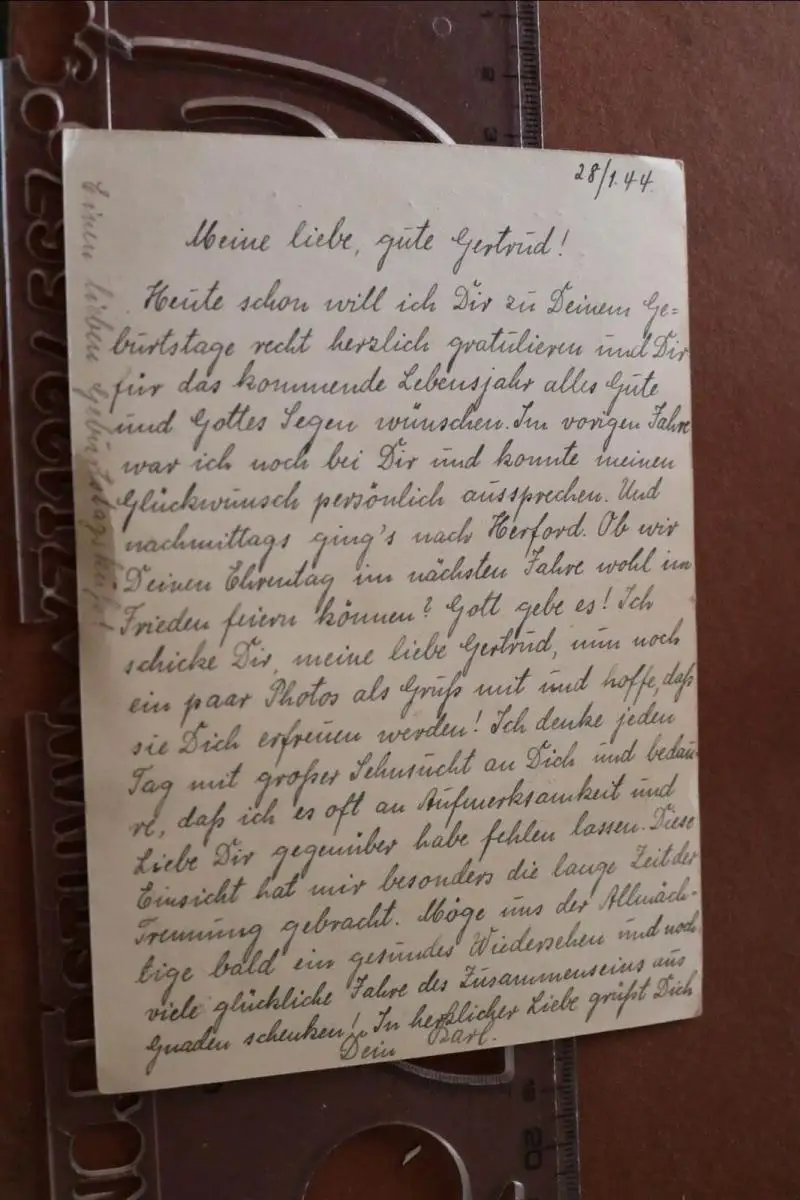 28/1.44.
Meine liebe, gute Gertrud!
Heute schon will ich Dir zu Deinem Ge=
burtstage recht herzlich gratulieren und Dir
für das kommende Lebensjahr alles Gute
und Gottes Segen wünschen. Im vorigen Jahre
war ich noch bei Dir und konnte meinen
Glückwunsch persönlich aussprechen. Und
nachmittags ging's nach Herford. Ob wir
Deinen Ehrentag im nächsten Jahre wohl im
Frieden feiern können? Gott gebe es! Ich
schicke Dir, meine liebe Gertrud, nun noch
ein paar Photos als Gruß mit und hoffe, daß
sie Dich erfreuen werden! Ich denke jeden
Tag mit großer Sehnsucht an Dich und bedau-
re, daß ich es oft an Aufmerksamkeit und
Liebe Dir gegenüber habe fehlen lassen. Diese
Einsicht hat mir besonders die lange Zeit der
Trennung gebracht. Möge uns der Allmäch-
tige bald ein gesundes Wiedersehen und noch
viele glückliche Jahre des Zusammenseins aus
Gnaden schenken! In herzlicher Liebe grüßt Dich
Dein Karl.
Einen lieben Geburtstagskuß!
1
2
3
20